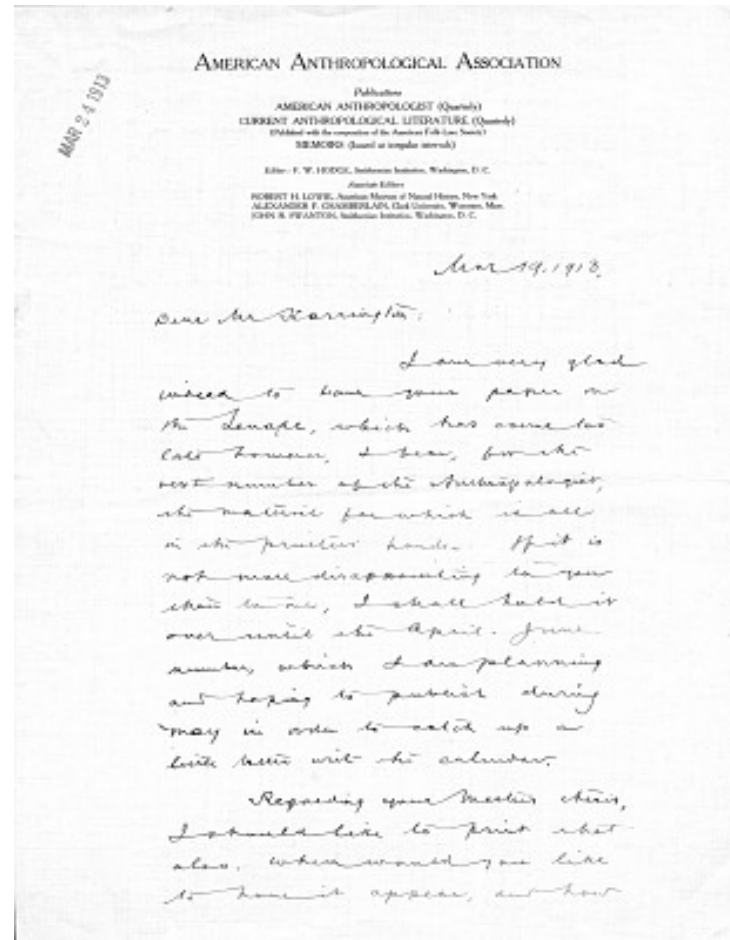 AMERICAN ANTHROPOLOGICAL ASSOCIATION
MAR 24 1913
Publications
AMERICAN ANTHROPOLOGIST (Quarterly)
CURRENT ANTHROPOLOGICAL LITERATURE (Quarterly)
(Published with the cooperation of the American Folk-Lore Society)
MEMOIRS (Issued at irregular intervals)
Editor—F. W. HODGE, Smithsonian Institution, Washington, D. C.
Associate Editors
ROBERT H. LOWIE, American Museum of Natural History, New York
ALEXANDER F. CHAMBERLAIN, Clark University, Worcester, Mass.
JOHN R. SWANTON, Smithsonian Institution, Washington, D. C.
Mar 19, 1913.
Dear Mr Harrington:
I am very glad
indeed to have your paper on
the Lenape, which has come too
late however, I fear, for the
next number of the Anthropologist,
the material for which is all
in the printers hands. If it is
not more disappointing to you
than to me, I shall hold it
over until the April-June
number, which I am planning
and hoping to publish during
May in order to catch up a
little better with the calendar.
Regarding your Master's thesis,
I should like to print that
also. When would you like
to have it appear, and how